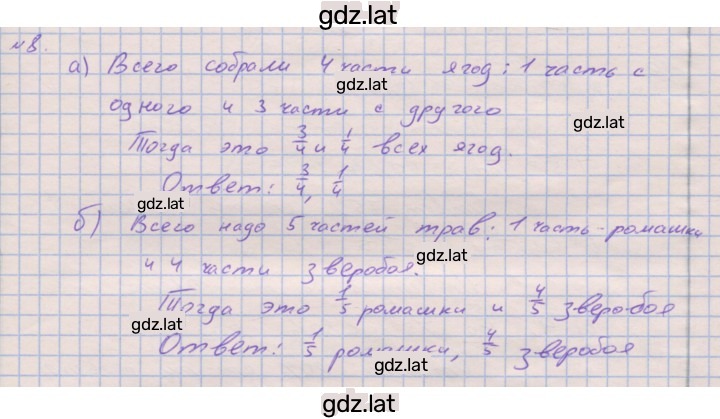 gdz.lat
№8.
а) Всего собрали 4 части ягод: 1 часть с
gdz.lat
одного и 3 части с другого
gdz.lat
Тогда это 3/4 и 1/4 всех ягод.
Ответ: 3/4, 1/4
gdz.lat
б) Всего надо 5 частей трав: 1 часть - ромашки
gdz.lat
и 4 части зверобоя.
gdz.lat
Тогда это 1/5 ромашки и 4/5 зверобоя
gdz.lat
Ответ: 1/5 ромашки, 4/5 зверобоя
gdz.lat
gdz.lat